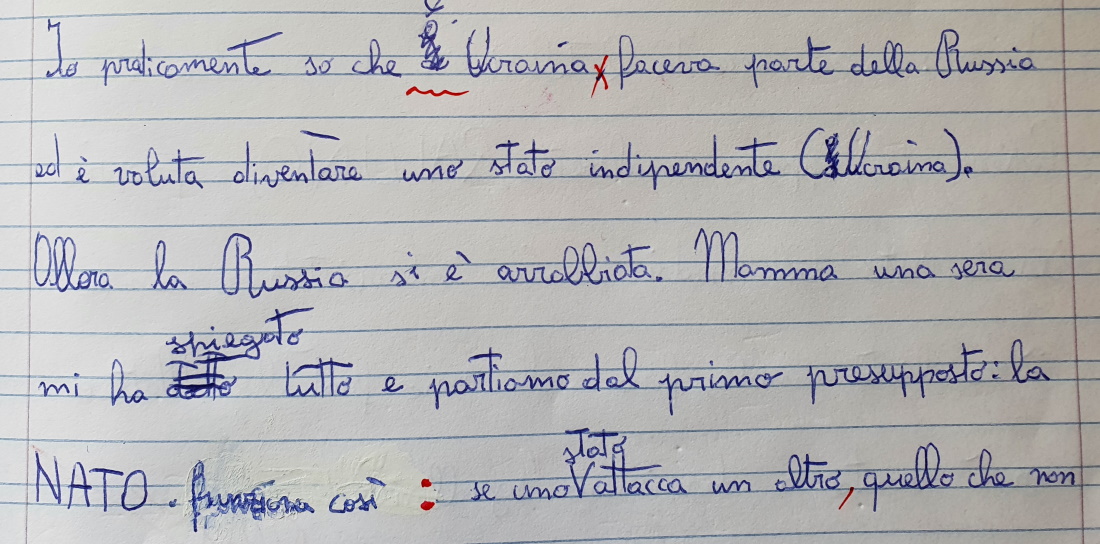 Io praticamente so che Ucraina faceva parte della Russia
ed è voluta diventare uno stato indipendente (Ucraina).
Allora la Russia si è arrabbiata. Mamma una sera
spiegato
mi ha tutto e partiamo dal primo presupposto: la
stato
NATO. funziona così : se uno attacca un altro, quello che non